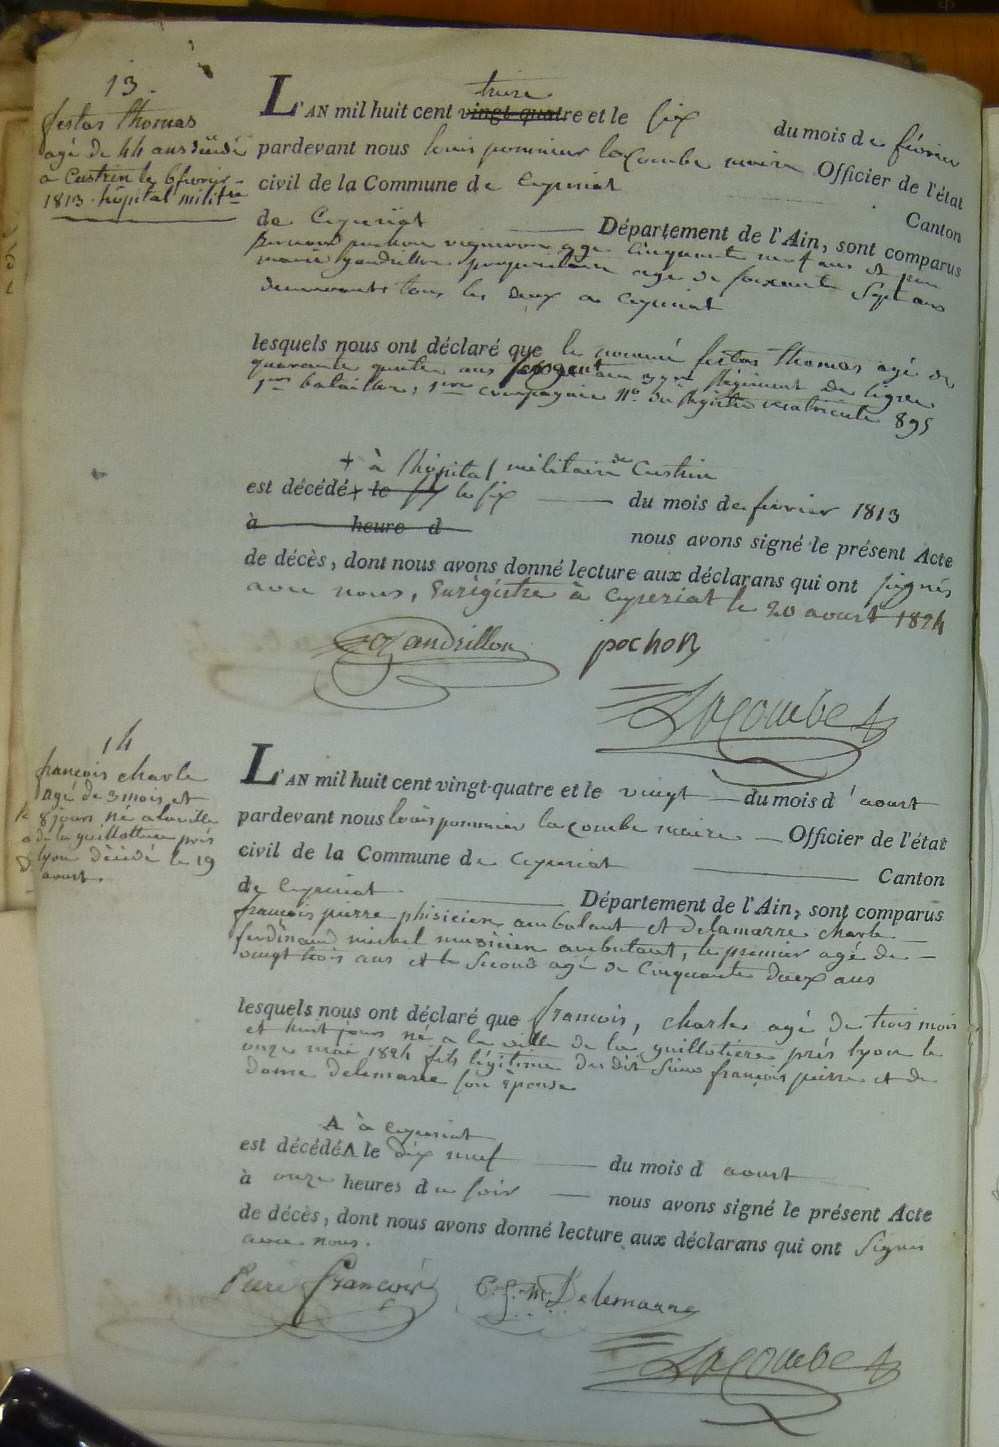 13.
festas Thomas
agé de 44 ans décédé
a Custrin le 6 fevrier
1813. hôpital militre
treize
L'AN mil huit cent vingt-quatre et le six du mois de février
pardevant nous louis pommier lacombe maire Officier de l'état
civil de la Commune de Ceyzeriat Canton
de Ceyzeriat Département de l'Ain, sont comparus
pochon vigneron agé cinquante neuf ans et
marie gandrillon propriétaire agé de soixante sept ans
demeurants tous les deux a Ceyzeriat
lesquels nous ont déclaré que le nommé festas Thomas agé de
quarante quatre ans sergent au Régiment de ligne
1er bataillon, 1re compagnie No du Registre matricule 895
+ à l'hôpital militaire de Custrin
est décédé + le six du mois de fevrier 1813
à heure d nous avons signé le présent Acte
de décès, dont nous avons donné lecture aux déclarans qui ont signés
avec nous, Enrégistre à Ceyzeriat le 20 aoust 1824
Gandrillon pochon
Lacombe
14
françois charle
agé de 3 mois et
8 jours né a la ville
de la guillottiere près
lyon décédé le 19
aoust.
L'AN mil huit cent vingt-quatre et le vingt du mois d'aoust
pardevant nous louis pommier lacombe maire Officier de l'état
civil de la Commune de Ceyzeriat Canton
de Ceyzeriat Département de l'Ain, sont comparus
françois pierre phisicien ambulant et delamarre charle
ferdinand michel musicien ambulant, le premier agé de
vingt trois ans et le second agé de Cinquante deux ans
lesquels nous ont déclaré que francois, charle agé de trois mois
et huit jours né a la ville de la guillotiere près lyon le
onze mai 1824 fils légitime du dit Sieur françois pierre et de
dame delemarre son épouse
A à Ceyzeriat
est décédé A le dix neuf du mois d aoust
à onze heures du soir nous avons signé le présent Acte
de décès, dont nous avons donné lecture aux déclarans qui ont Signés
avec nous.
Piere francois C. f. m. Delemarre
Lacombe